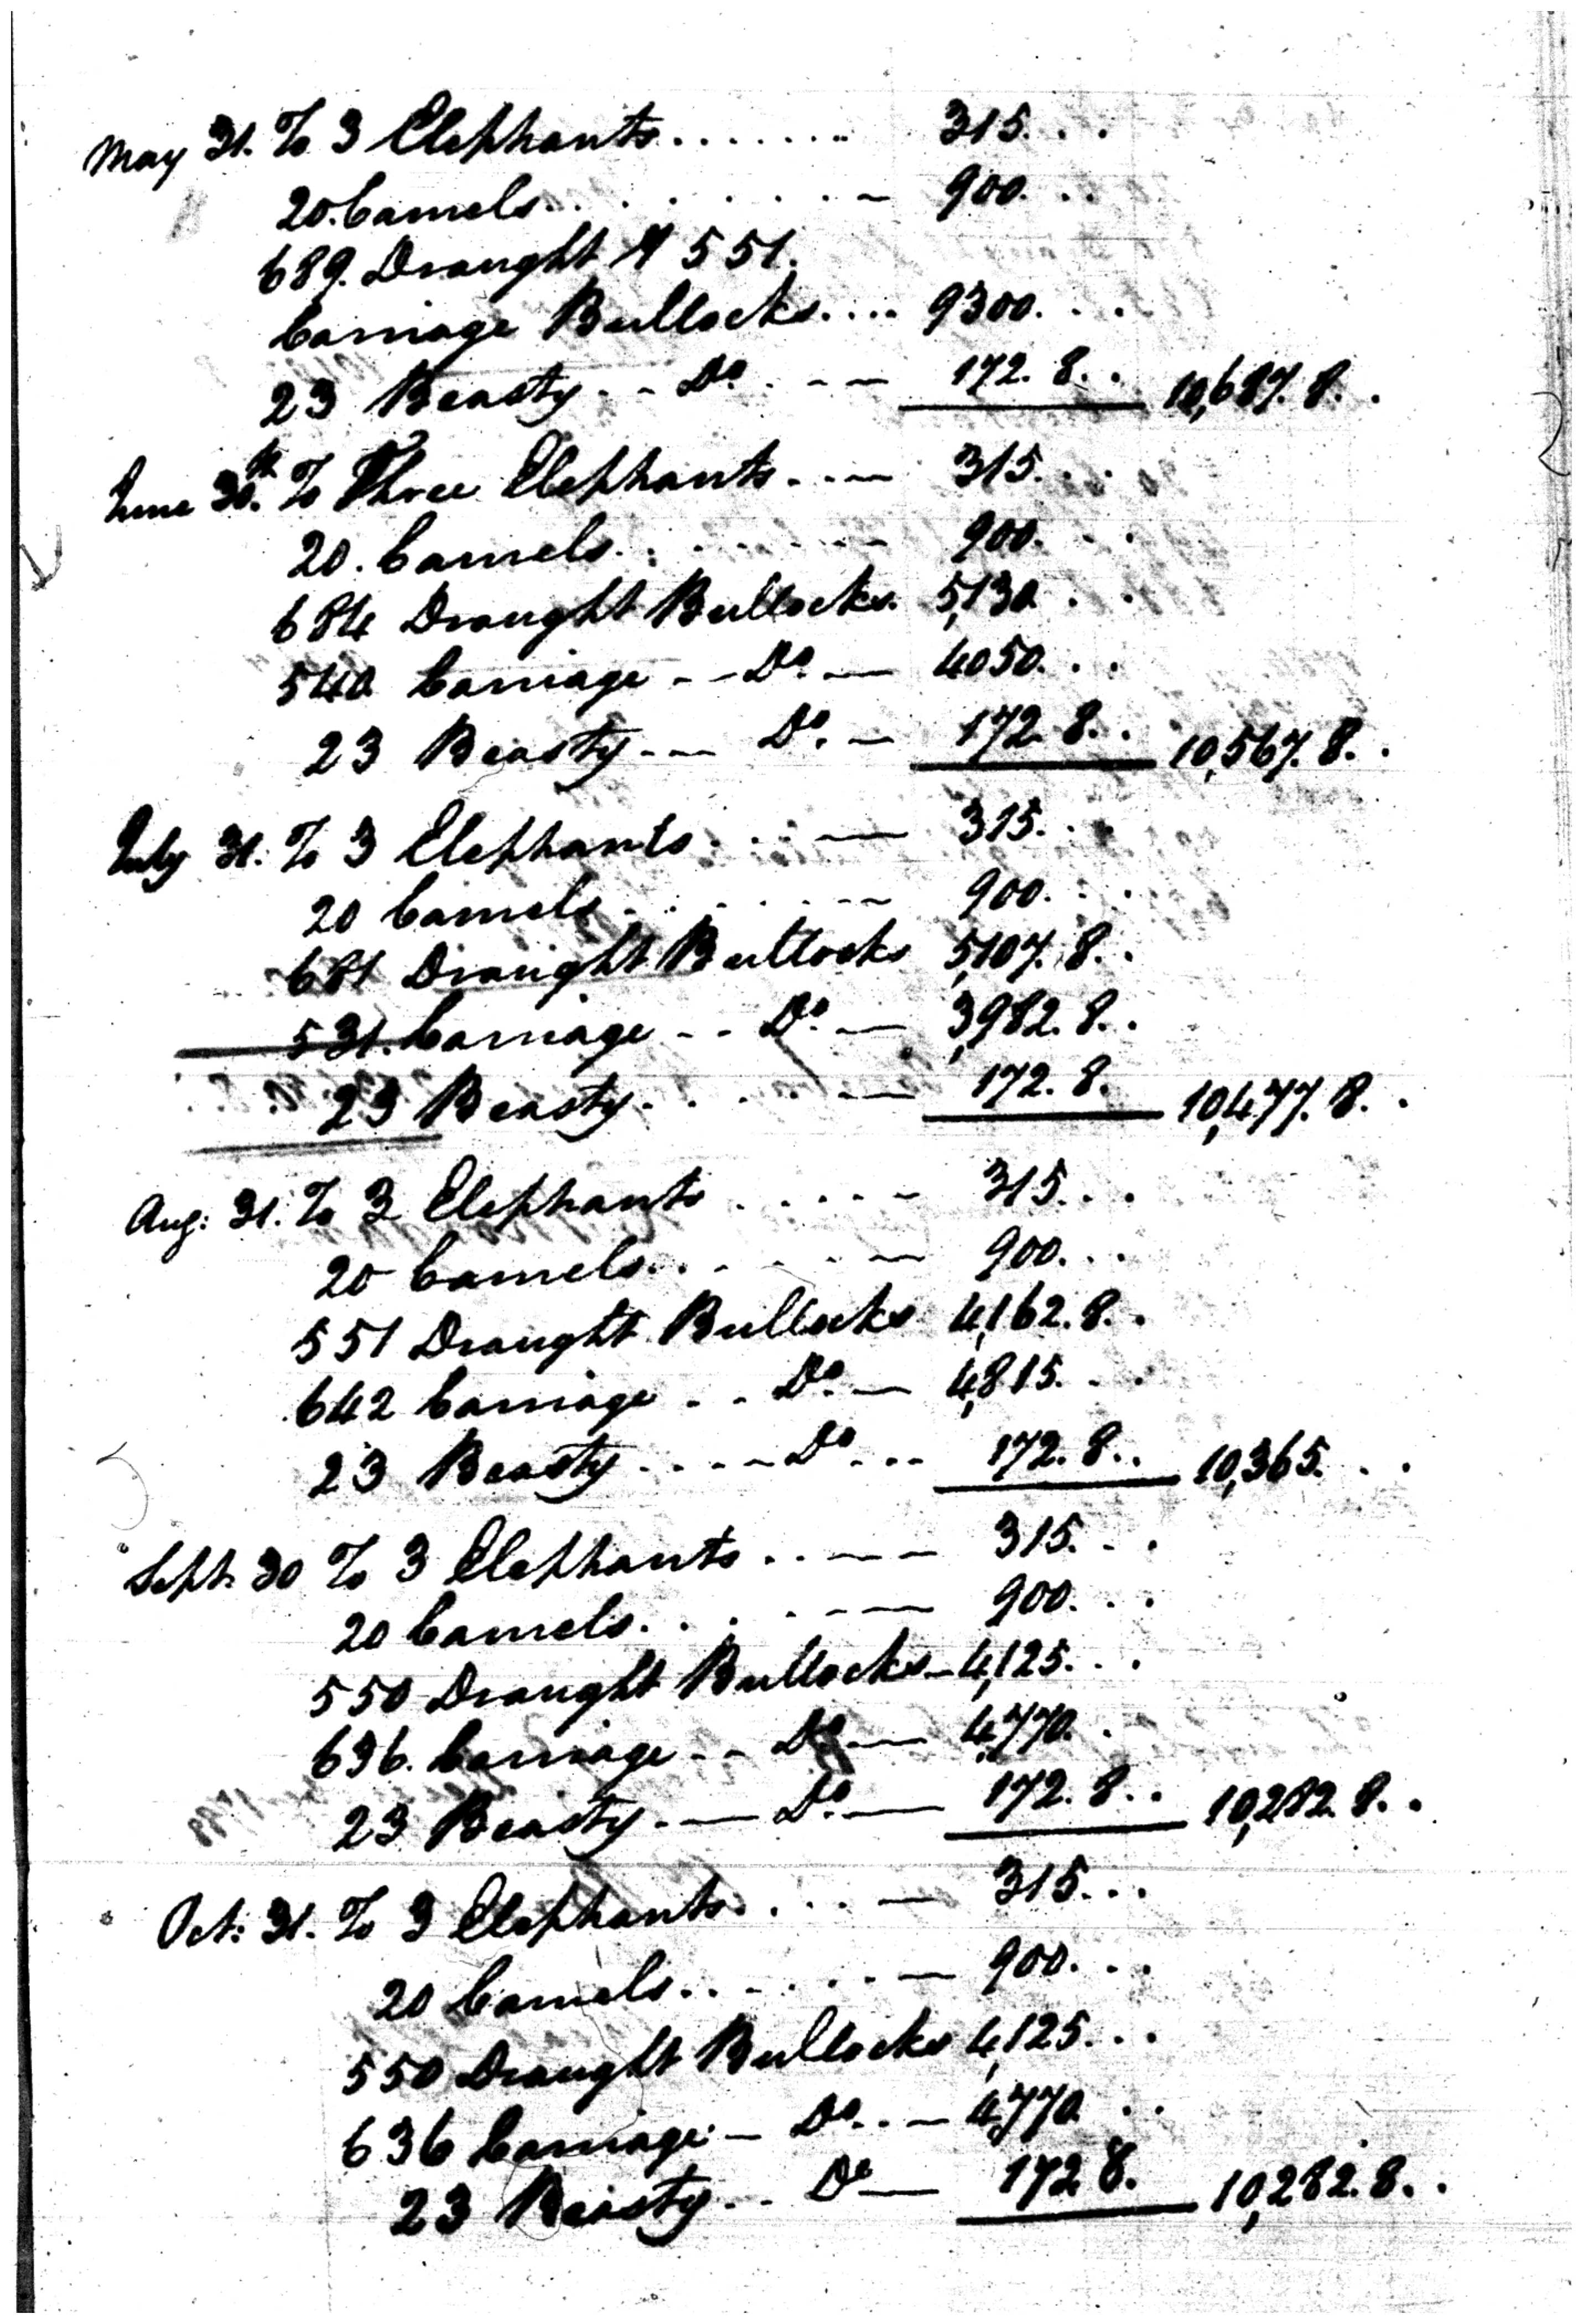 May 31. To 3 Elephants........ 315...
20. Camels........— 900...
689. Draught & 551.
Carriage Bullocks.... 9300...
23 Beasty.. - Do. - — — 172. 8.. 10,687. 8..
June 30th. To Three Elephants..— 315...
20. Camels.......— 900...
684 Draught Bullocks. 5,130...
540 Carriage - — Do. — 4050...
23 Beasty - — Do. — 172. 8.. 10,567. 8..
July 31. To 3 Elephants...— 315...
20 Camels.......— 900...
681 Draught Bullocks 5,107. 8..
531. Carriage - - Do. — 3,982. 8..
23 Beasty.....— 172. 8. 10,477. 8..
Aug: 31. To 3 Elephants.....- 315...
20 Camels.......— 900...
551 Draught Bullocks 4,162. 8..
642 Carriage - - Do. — 4,815...
23 Beasty.....- Do... 172. 8.. 10,365...
Sept. 30 To 3 Elephants..— — 315...
20 Camels.....— — 900...
550 Draught Bullocks - 4,125...
636. Carriage - - Do. — 4,770..
23 Beasty. — Do. — 172. 8.. 10,282. 8..
Oct: 31. To 3 Elephants....— 315...
20 Camels.......— 900...
550 Draught Bullocks 4,125...
636 Carriage - Do..— 4,770..
23 Beasty.. Do — 172 8. 10,282. 8..